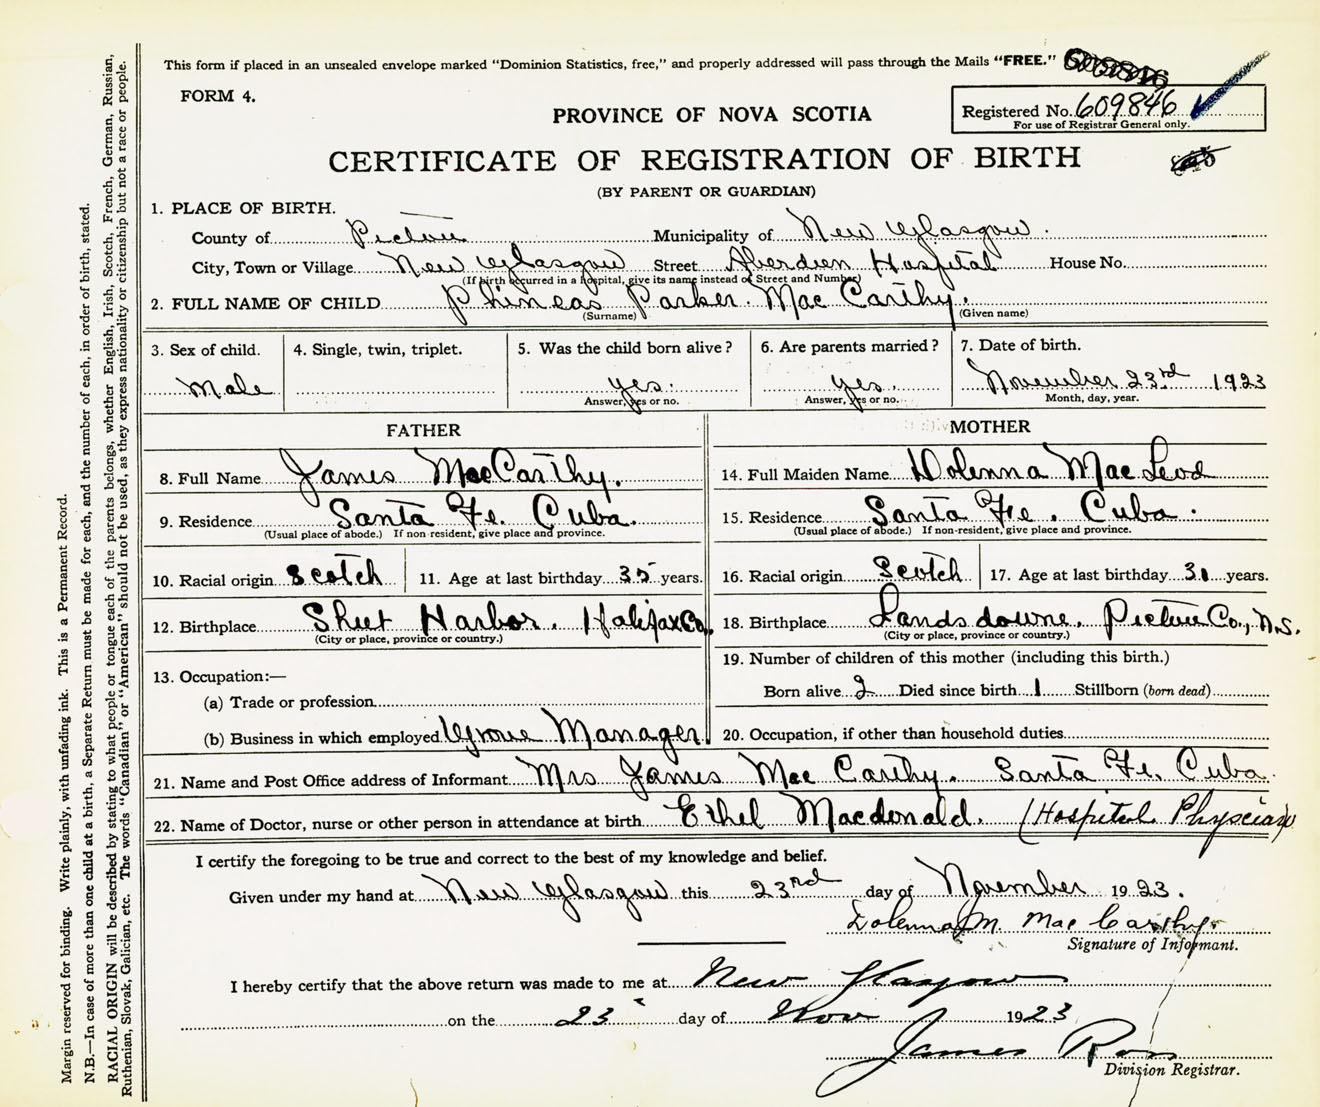 This form if placed in an unsealed envelope marked "Dominion Statistics, free," and properly addressed will pass through the Mails "FREE."
FORM 4.
PROVINCE OF NOVA SCOTIA
Registered No. 609846
For use of Registrar General only.
CERTIFICATE OF REGISTRATION OF BIRTH
(BY PARENT OR GUARDIAN)
1. PLACE OF BIRTH.
County of Pictou Municipality of New Glasgow.
City, Town or Village New Glasgow Street Aberdeen Hospital House No.
(If birth occurred in a hospital, give its name instead of Street and Number)
2. FULL NAME OF CHILD Phineas Parker. MacCarthy.
(Surname) (Given name)
3. Sex of child. 4. Single, twin, triplet. 5. Was the child born alive? 6. Are parents married? 7. Date of birth.
Male yes. yes. November 23rd 1923
Answer, yes or no. Answer, yes or no. Month, day, year.
FATHER MOTHER
8. Full Name James MacCarthy. 14. Full Maiden Name Dolenna MacLeod
9. Residence Santa Fe. Cuba. 15. Residence Santa Fe. Cuba.
(Usual place of abode.) If non-resident, give place and province. (Usual place of abode.) If non-resident, give place and province.
10. Racial origin Scotch 11. Age at last birthday 35 years. 16. Racial origin Scotch 17. Age at last birthday 31 years.
12. Birthplace Sheet Harbor. Halifax Co. 18. Birthplace Landsdowne. Pictou Co., N.S.
(City or place, province or country.) (City or place, province or country.)
13. Occupation:— 19. Number of children of this mother (including this birth.)
(a) Trade or profession Born alive 2 Died since birth 1 Stillborn (born dead)
(b) Business in which employed Grove Manager. 20. Occupation, if other than household duties
21. Name and Post Office address of Informant Mrs James MacCarthy. Santa Fe, Cuba.
22. Name of Doctor, nurse or other person in attendance at birth Ethel Macdonald. (Hospital Physcian)
I certify the foregoing to be true and correct to the best of my knowledge and belief.
Given under my hand at New Glasgow this 23rd day of November 1923.
Dolenna M. MacCarthy.
Signature of Informant.
I hereby certify that the above return was made to me at New Glasgow
on the 23 day of Nov 1923
James Ross
Division Registrar.
Margin reserved for binding. Write plainly, with unfading ink. This is a Permanent Record.
N.B.—In case of more than one child at a birth, a Separate Return must be made for each, and the number of each, in order of birth, stated.
RACIAL ORIGIN will be described by stating to what people or tongue each of the parents belongs, whether English, Irish, Scotch, French, German, Russian,
Ruthenian, Slovak, Galician, etc. The words "Canadian" or "American" should not be used, as they express nationality or citizenship but not a race or people.